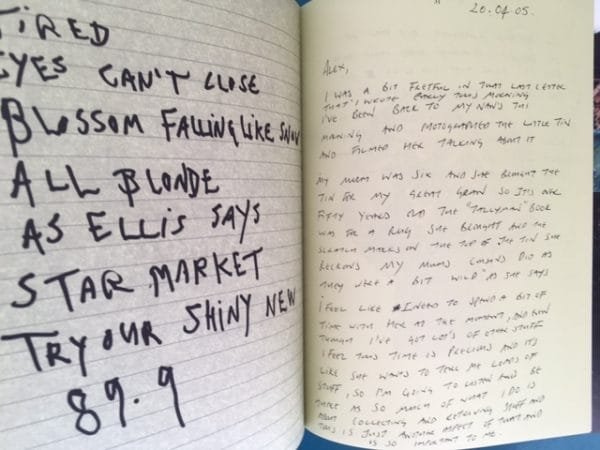 TIRED
EYES CAN'T CLOSE
BLOSSOM FALLING LIKE SNOW
ALL BLONDE
AS ELLIS SAYS
STAR MARKET
TRY OUR SHINY NEW
89.9
20.04.05.
ALEX,
I WAS A BIT FRETFUL IN THAT LAST LETTER
THAT I WROTE EARLY THIS MORNING
I'VE BEEN BACK TO MY NAN'S THIS
MORNING AND PHOTOGRAPHED THE LITTLE TIN
AND FILMED HER TALKING ABOUT IT
MY MUM WAS SIX AND SHE BROUGHT THE
TIN FOR MY GREAT GRAN SO IT'S OVER
FIFTY YEARS OLD THE "TALLYMAN" BOOK
WAS FOR A RING SHE BROUGHT AND THE
SCRATCH MARKS ON THE TOP OF THE TIN SHE
RECKONS MY MUMS COUSINS DID AS
THEY WERE A BIT WILD" AS SHE SAYS
I FEEL LIKE I NEED TO SPEND A BIT OF
TIME WITH HER AT THE MOMENT, AND EVEN
THOUGH I'VE GOT LOT'S OF OTHER STUFF
I FEEL THIS TIME IS PRECIOUS AND IT'S
LIKE SHE WANTS TO TELL ME LOADS OF
STUFF, SO I'M GOING TO LISTEN AND BE
THERE AS SO MUCH OF WHAT I DO IS
ABOUT COLLECTING AND RETRIEVING STUFF AND
THIS IS JUST ANOTHER ASPECT OF THAT AND
IS SO IMPORTANT TO ME.